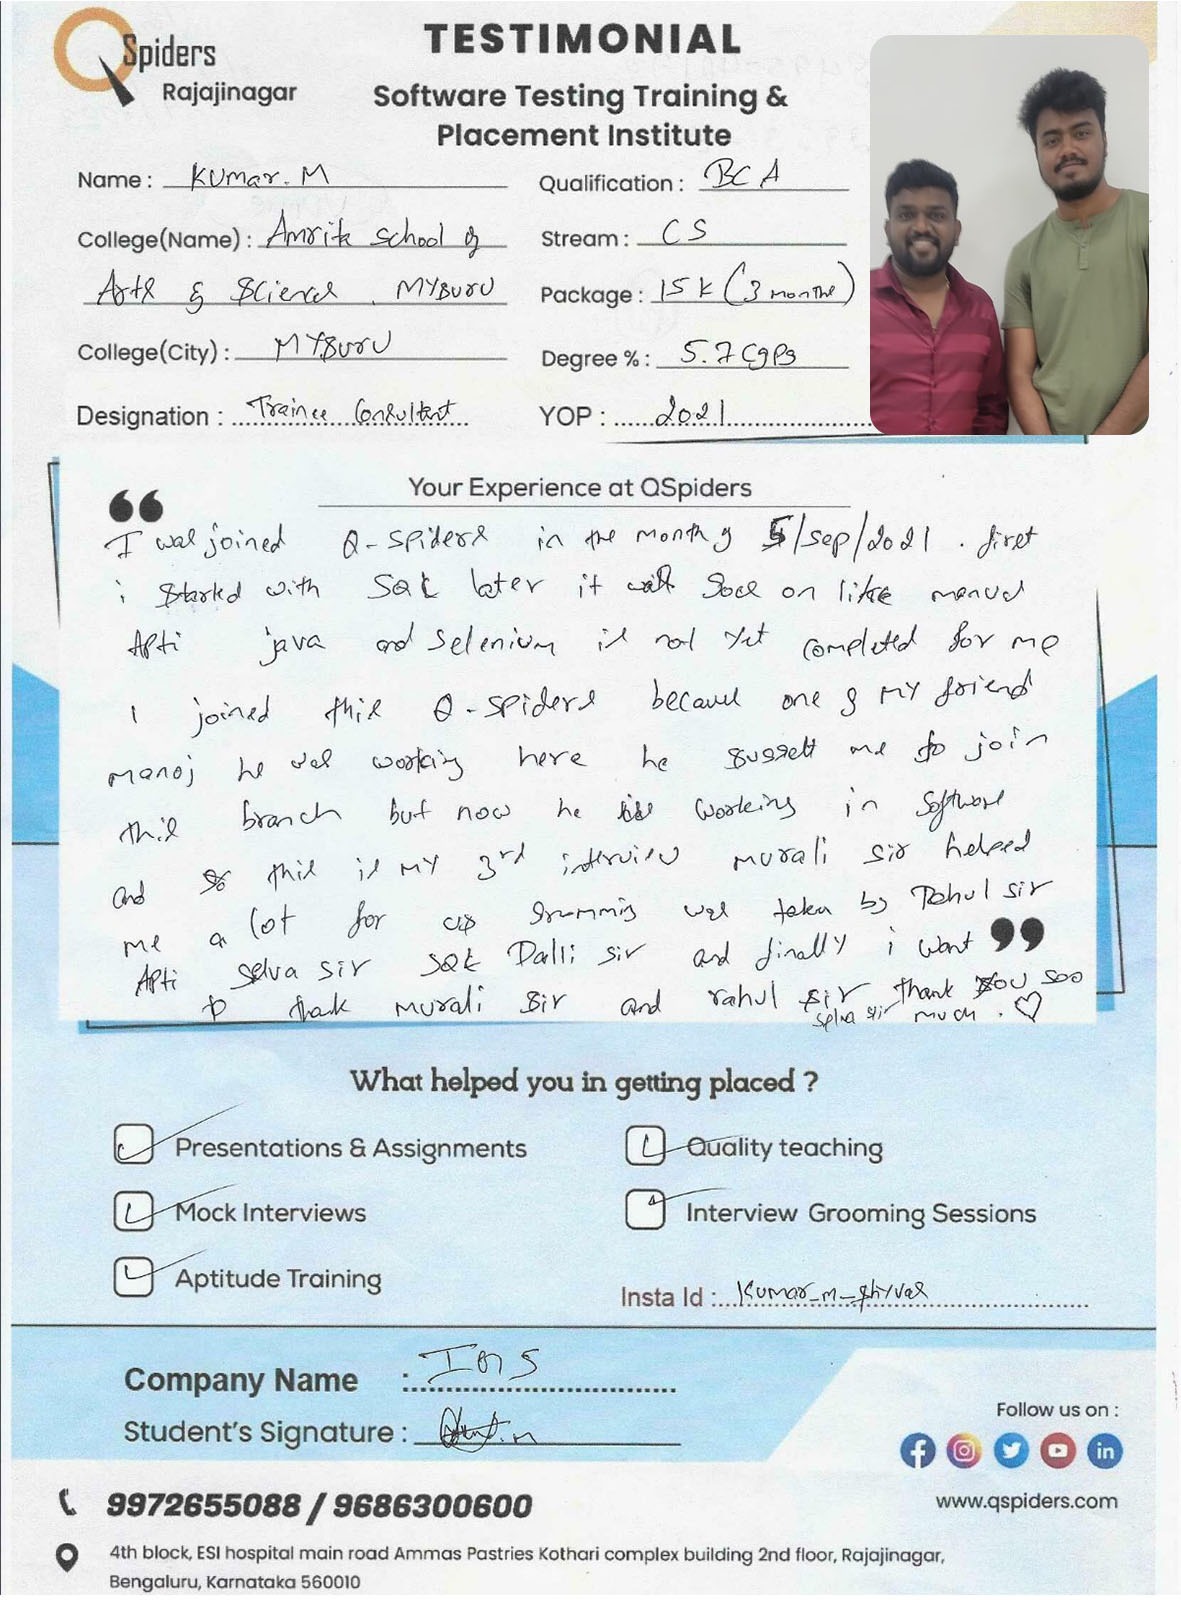 QSpiders
Rajajinagar
TESTIMONIAL
Software Testing Training &
Placement Institute
Name : Kumar. M
Qualification : BCA
College(Name) : Amrita School of
Stream : CS
Arts & Science, MYSURU
Package : 15 K (3 months)
College(City) : MYSURU
Degree % : 5.7 Cgpa
Designation : Trainee Consultant
YOP : 2021
Your Experience at QSpiders
“
I was joined Q-spiders in the month of 5/Sep/2021 . first
i started with SQL later it was goes on like manual
Apti java and selenium is not yet completed for me
I joined this Q-spiders because one of my friend
manoj he was working here he suggest me to join
this branch but now he is working in software
and this is MY 3rd interview murali sir helped
me a lot for us grumming was taken by Rahul sir
Apti selva sir SQL Dalli sir and finally i want
”
to thank murali sir and rahul sir thank you soo
selva sir much . ♡
What helped you in getting placed ?
Presentations & Assignments
Quality teaching
Mock Interviews
Interview Grooming Sessions
Aptitude Training
Insta Id :
Company Name :
Student's Signature :
Follow us on :
9972655088 / 9686300600
www.qspiders.com
4th block, ESI hospital main road Ammas Pastries Kothari complex building 2nd floor, Rajajinagar,
Bengaluru, Karnataka 560010